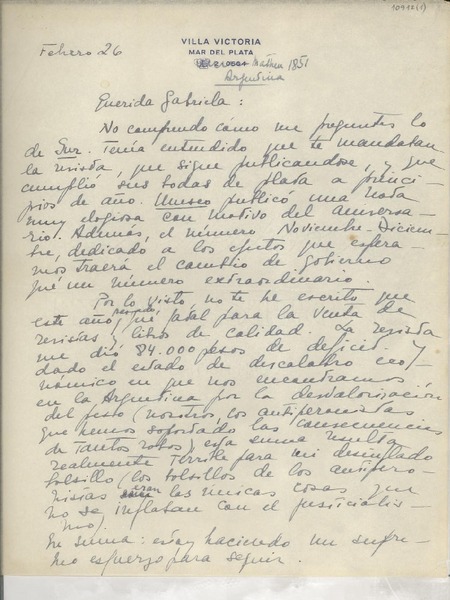 10912(1)
VILLA VICTORIA
MAR DEL PLATA
Febrero 26
Matheu 1851
Argentina
Querida Gabriela:
No comprendo cómo me preguntas lo
de Sur. Tenía entendido que te mandaban
la revista, que sigue publicandose, y que
cumplió sus bodas de plata a princi-
pios de año. Unesco publicó una nota
muy elogiosa con motivo del aniversa-
rio. Además, el número Noviembre-Diciem-
bre, dedicado a los efectos que espera-
mos traerá el cambio de gobierno
fué un número extraordinario.
Por lo visto, no te he escrito que
este año, pasado, fué fatal para la venta de
revistas y libros de calidad. La revista
me dió 84.000 pesos de deficit y
dado el estado de descalabro eco-
nomico en que nos encontramos
en la Argentina por la desvalorización
del peso (nosotros, los antiperonistas
que hemos soportado las consecuencias
de tantos robos) esta suma resulta
realmente terrible para mi desinflado
bolsillo (los bolsillos de los antipero-
nistas eran las unicas cosas que
no se inflaban con el justicialis-
mo).
En suma: estoy haciendo un supre-
mo esfuerzo para seguir.